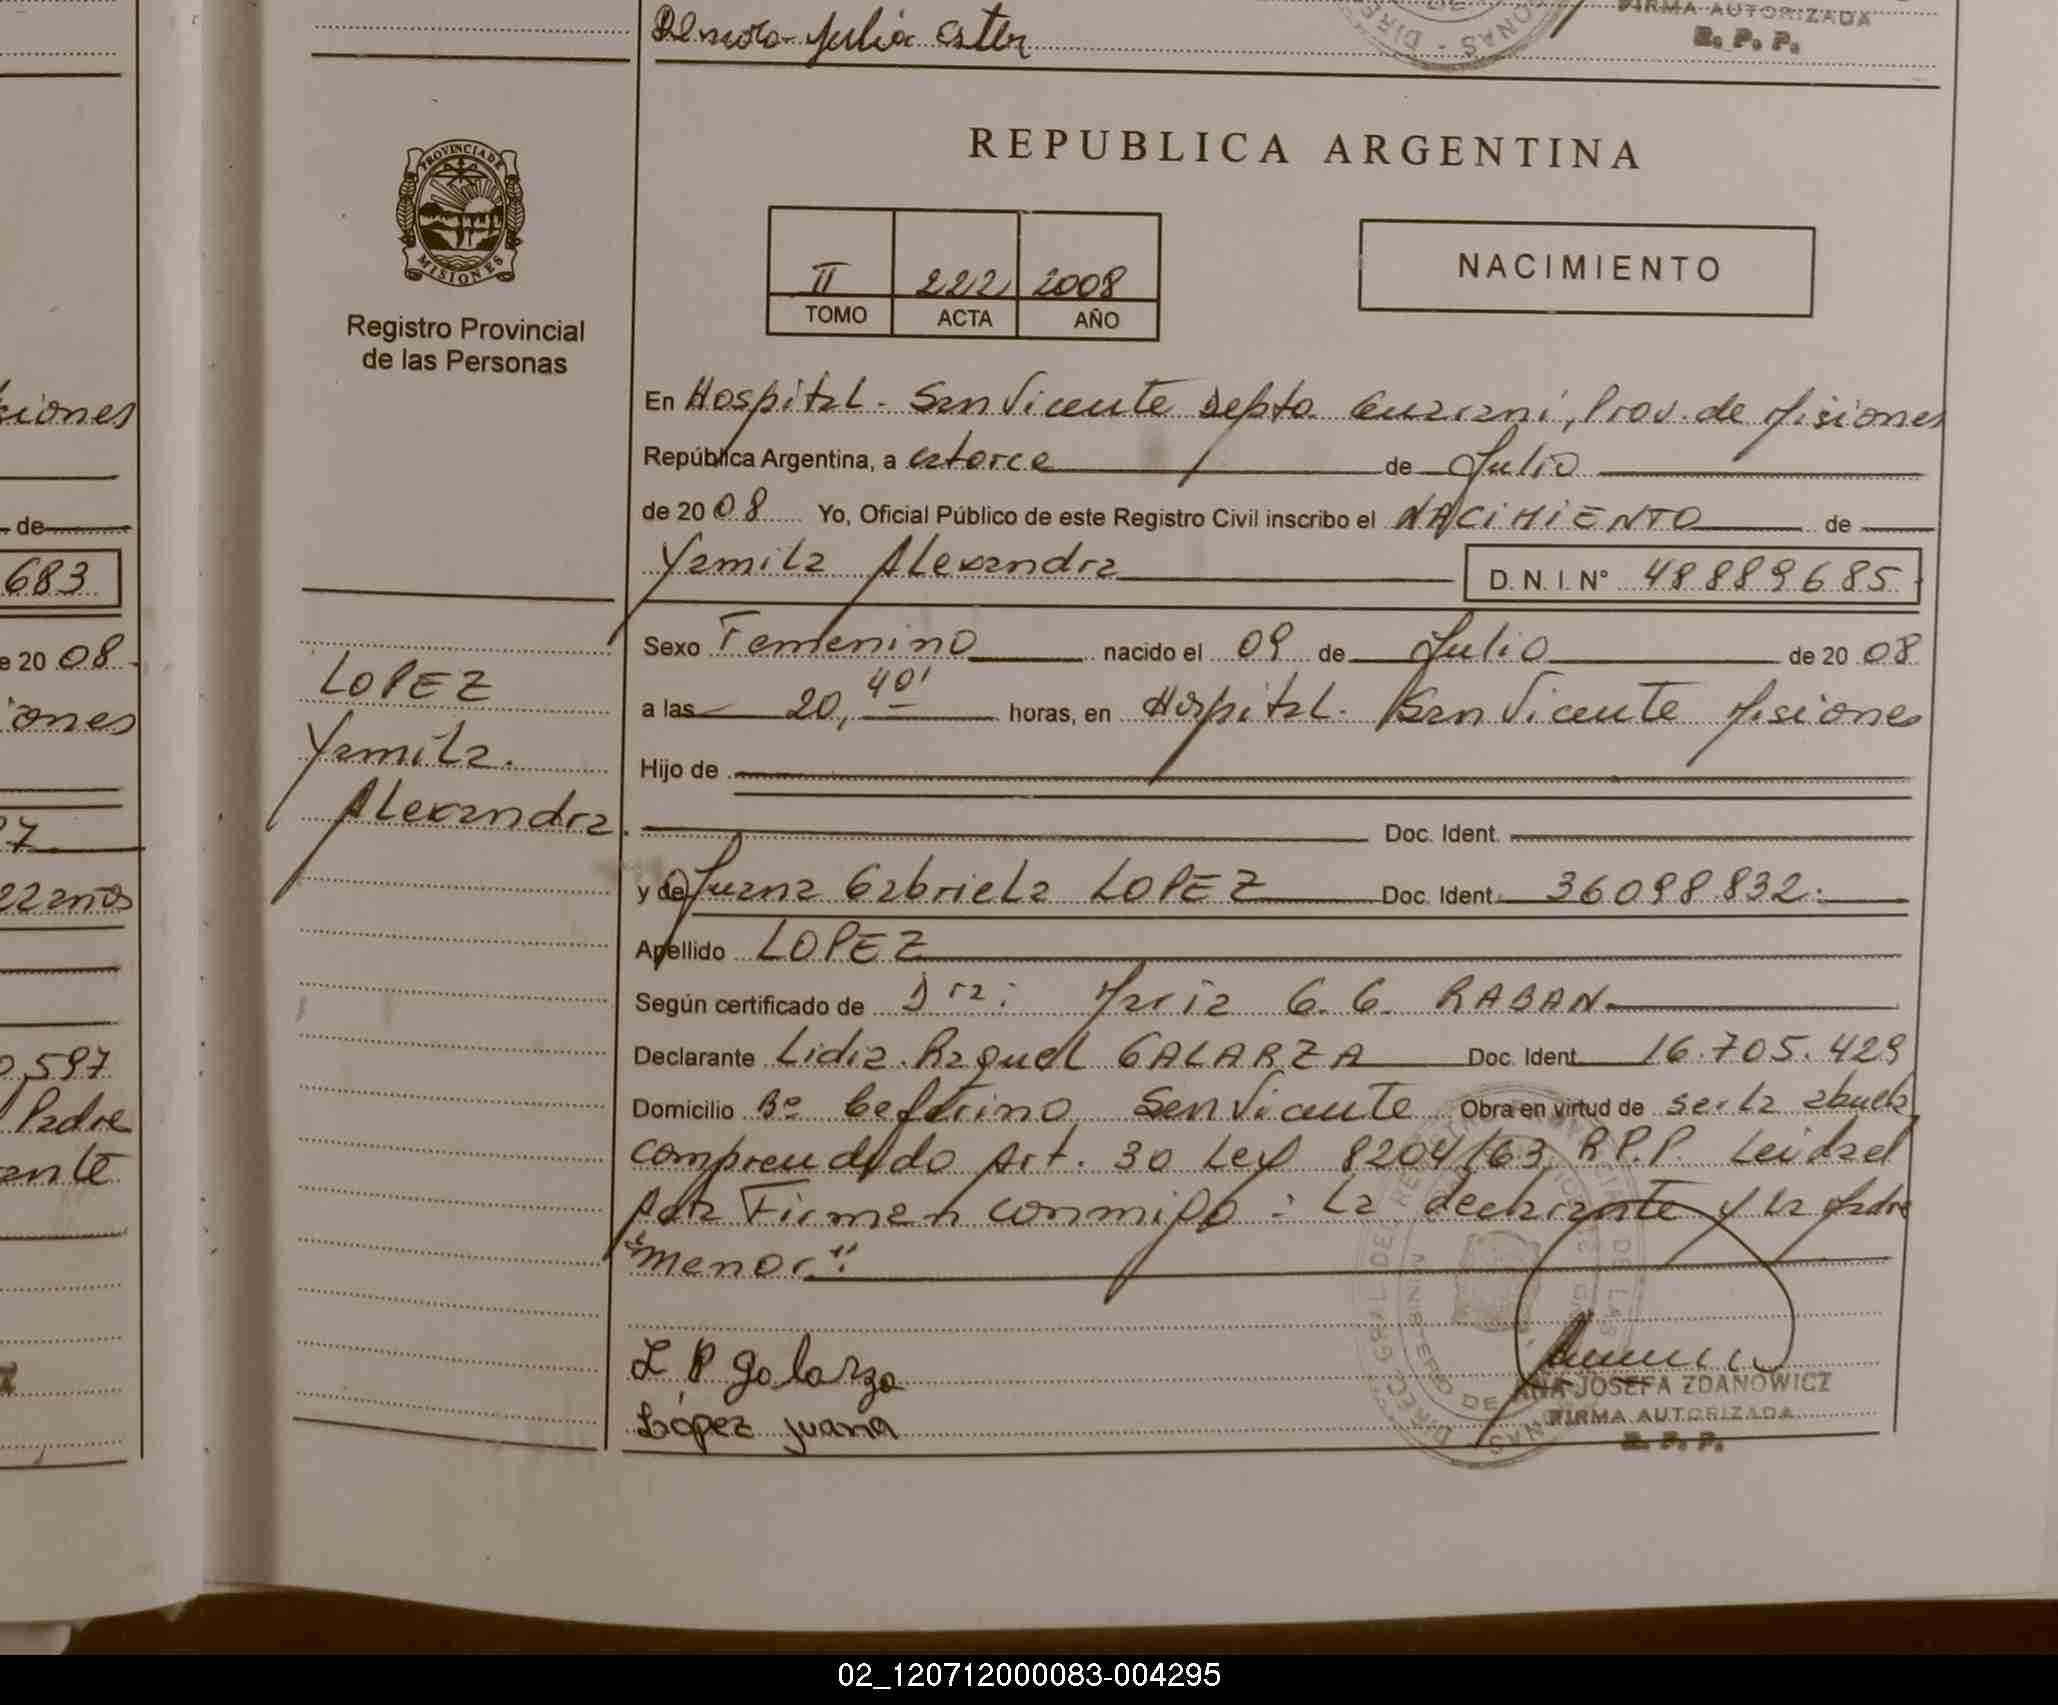 Julia Ester
FIRMA AUTORIZADA
R. P. P.
REPUBLICA ARGENTINA
PROVINCIA DE
MISIONES
Registro Provincial
de las Personas
II 222 2008
TOMO ACTA AÑO
NACIMIENTO
En Hospital - San Vicente Depto Guarani, Prov. de Misiones
República Argentina, a catorce de Julio
de 2008 Yo, Oficial Público de este Registro Civil inscribo el NACIMIENTO de
Yamila Alexandra D.N.I. N° 48889685
Sexo Femenino nacido el 09 de Julio de 2008
a las 20,40' horas, en Hospital - San Vicente Misiones
Hijo de
Doc. Ident.
y de Juana Gabriela LOPEZ Doc. Ident. 36098832.
Apellido LOPEZ
Según certificado de Dra: Maria G. G. RABAN
Declarante Lidia Raquel GALARZA Doc. Ident. 16.705.429
Domicilio Bº Ceferino San Vicente Obra en virtud de ser la abuela
comprendido Art. 30 Ley 8204/63 R.P.P. Leida el
Acta Firman conmigo: La declarante y la Madre
"menor"
L R Galarza
López Juana
ANA JOSEFA ZDANOWICZ
FIRMA AUTORIZADA
R. P. P.
LOPEZ
Yamila
Alexandra.
siones
de
683
e 20 08
iones
97
22 años
0,597
Padre
ante
02_120712000083-004295